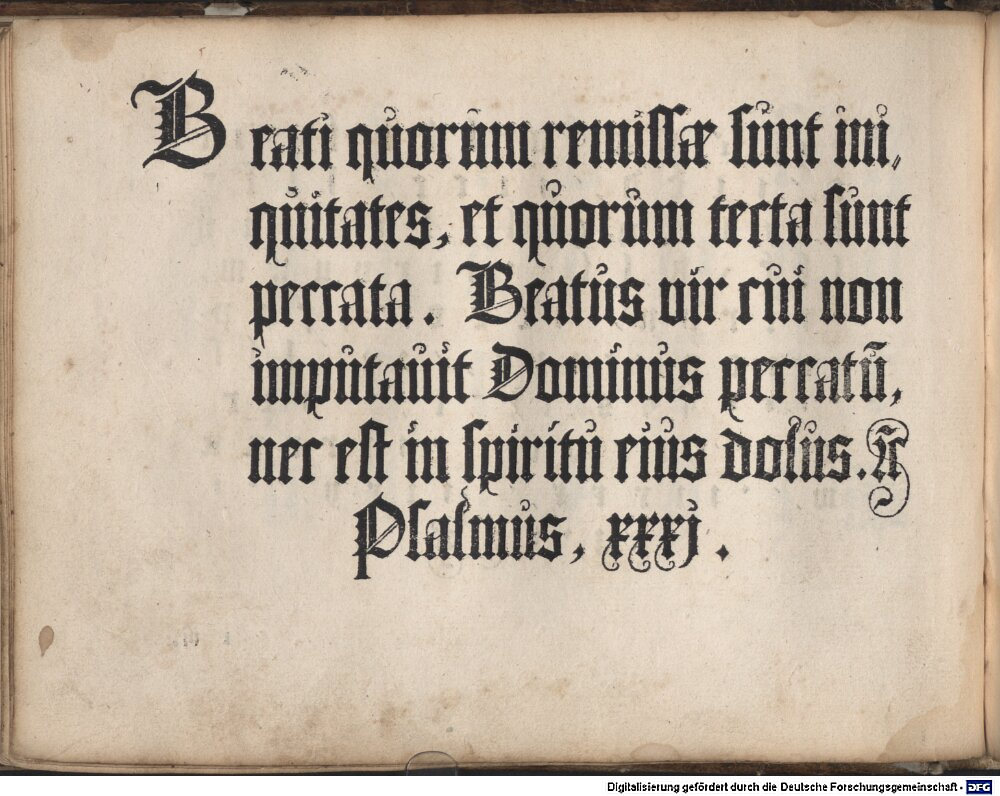 Beati quorum remissæ sunt ini⸗
quitates, et quorum tecta sunt
peccata. Beatus vir cui non
imputavit Dominus peccatū,
nec est in spiritu eius dolus.
Psalmus, xxxj.
Digitalisierung gefördert durch die Deutsche Forschungsgemeinschaft - DFG